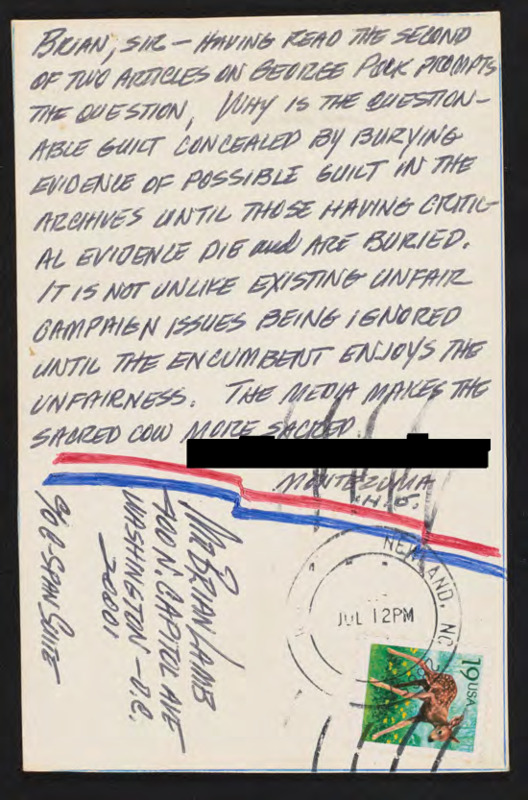 BRIAN, SIR — HAVING READ THE SECOND
OF TWO ARTICLES ON GEORGE POLK PROMPTS
THE QUESTION, WHY IS THE QUESTION-
ABLE GUILT CONCEALED BY BURYING
EVIDENCE OF POSSIBLE GUILT IN THE
ARCHIVES UNTIL THOSE HAVING CRITIC-
AL EVIDENCE DIE and ARE BURIED.
IT IS NOT UNLIKE EXISTING UNFAIR
CAMPAIGN ISSUES BEING IGNORED
UNTIL THE ENCUMBENT ENJOYS THE
UNFAIRNESS. THE MEDIA MAKES THE
SACRED COW MORE SACRED
MONTEZUMA
MR BRIAN LAMB
400 N. CAPITOL AVE
WASHINGTON — D.C.
20001
% C-SPAN SUITE
NEWLAND, NC
JUL 12PM
19 USA